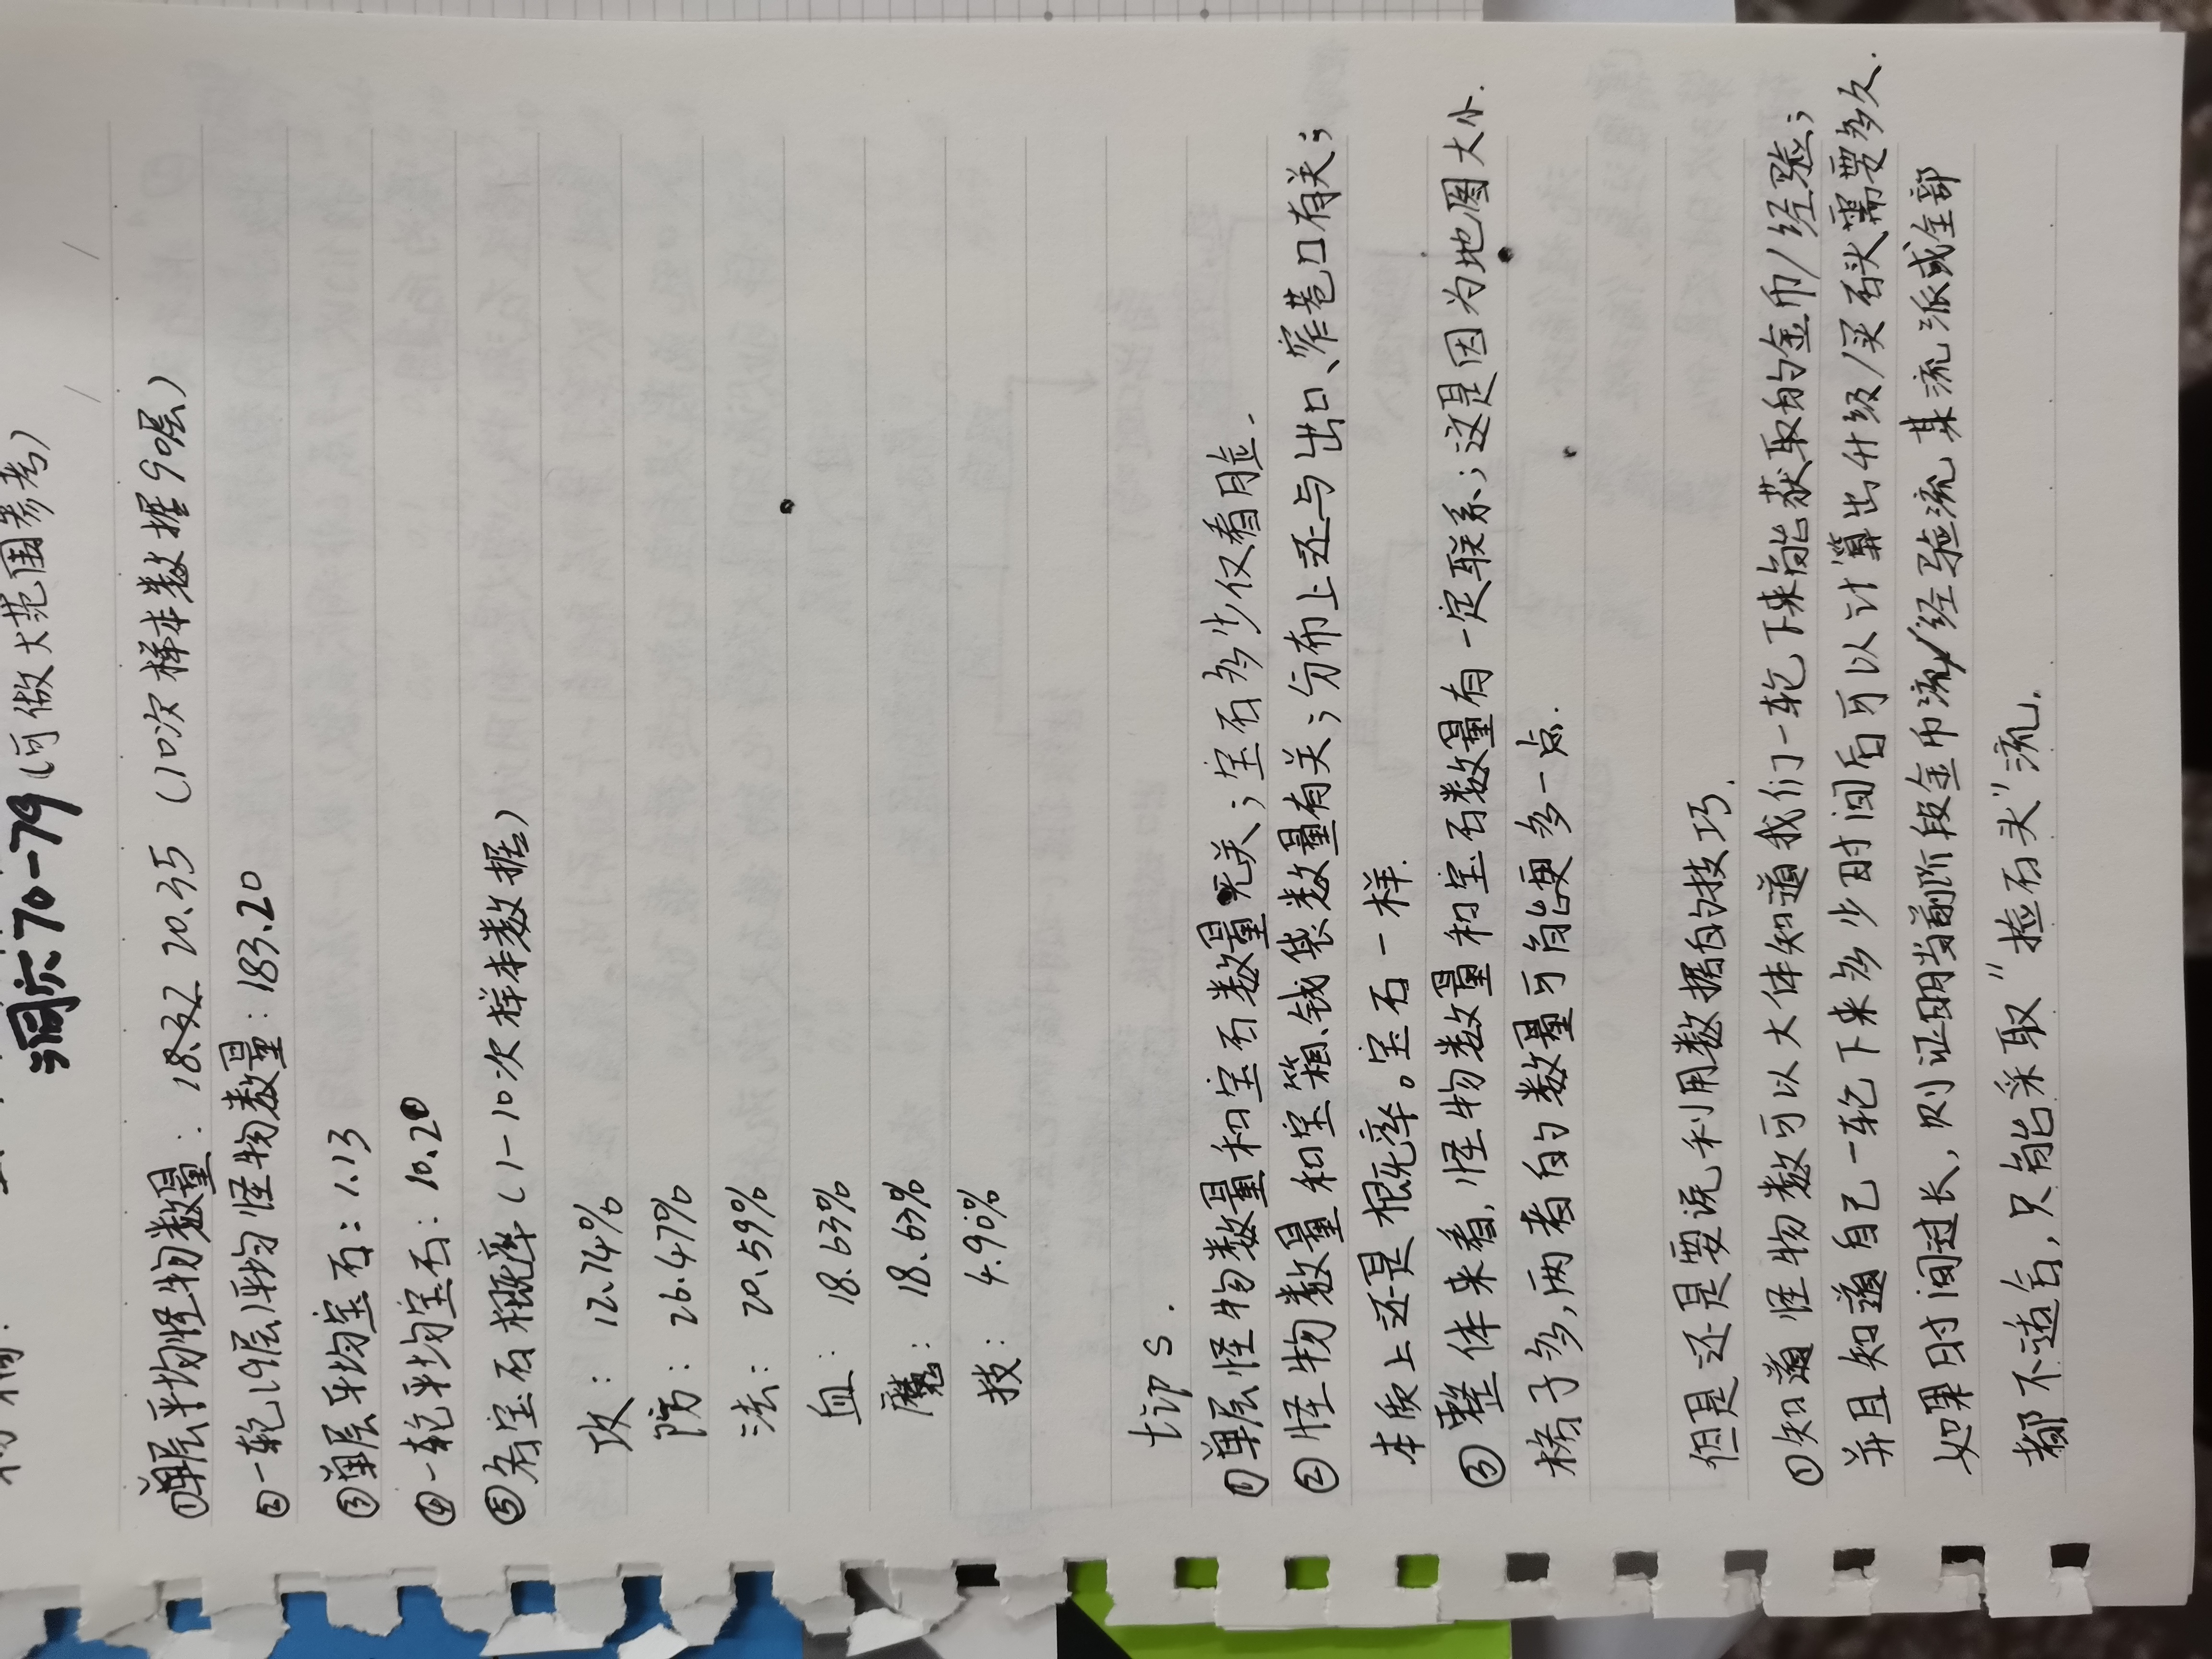 洞穴70-79(可做大范围参考)
①单层平均怪物数量：20.35（10次样本数据90层）
②一轮(9层)平均怪物数量：183.20
③单层平均宝石：1.13
④一轮平均宝石：10.20
⑤各宝石概率(1-10次样本数据)
攻：12.74%
防：26.47%
法：20.59%
血：18.63%
魔：18.63%
技：4.90%
tips.
①单层怪物数量和宝石数量无关；宝石多少仅看脸.
②怪物数量和宝箱、钱袋数量有关；分布上还与出口、窄巷口有关；
本质上还是概率。宝石一样.
③整体来看，怪物数量和宝石数量有一定联系；这是因为地图大小.
格子多，两者的数量可能更多一点.
但是还是要说利用数据的技巧.
①知道怪物数可以大体知道我们一轮下来能获取的金币/经验；
并且知道自己一轮下来多少时间后可以计算出升级/买石头需要多久.
如果时间过长，则证明当前阶段金币流/经验流某流派或全部
都不适合，只能采取"捡石头"流.